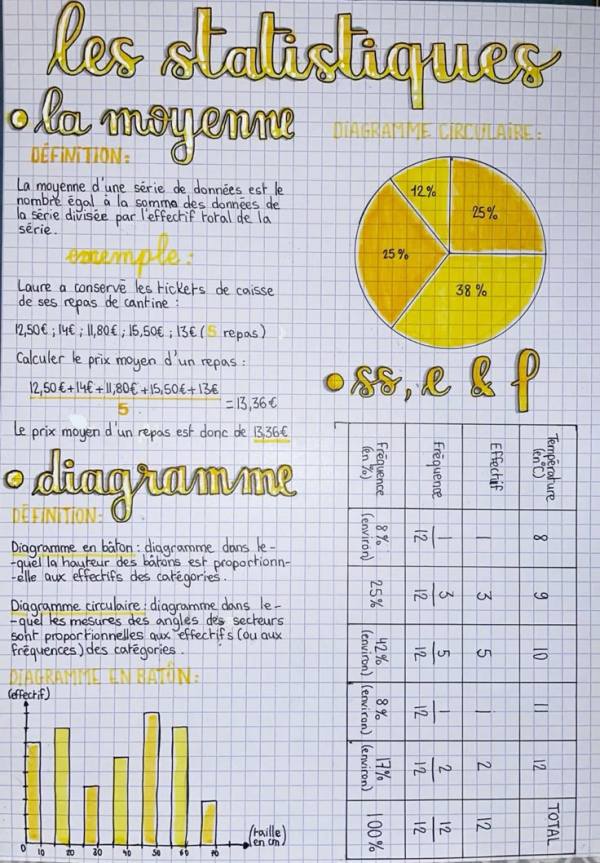 les statistiques
• la moyenne
DÉFINITION:
La moyenne d'une série de données est le
nombre égal à la somme des données de
la série divisée par l'effectif total de la
série.
exemple:
Laure a conservé les tickets de caisse
de ses repas de cantine :
12,50€ ; 14€ ; 11,80€ ; 15,50€ ; 13€ (5 repas)
Calculer le prix moyen d'un repas :
12,50€+14€+11,80€+15,50€+13€
5
=13,36€
Le prix moyen d'un repas est donc de 13,36€
• diagramme
DÉFINITION:
Diagramme en bâton : diagramme dans le-
-quel la hauteur des bâtons est proportionn-
-elle aux effectifs des catégories.
Diagramme circulaire : diagramme dans le-
-quel les mesures des angles des secteurs
sont proportionnelles aux effectifs (ou aux
fréquences) des catégories.
DIAGRAMME EN BATÔN:
(effectif)
0 10 20 30 40 50 60 70
(taille)
en cm
DIAGRAMME CIRCULAIRE:
12%
25%
25%
38%
• ss, e & f
Température (en°C) 8 9 10 11 12 TOTAL
Effectif 1 3 5 1 2 12
Fréquence 1/12 3/12 5/12 1/12 2/12 12/12
Fréquence (en%) 8% (environ) 25% 42% (environ) 8% (environ) 17% (environ) 100%